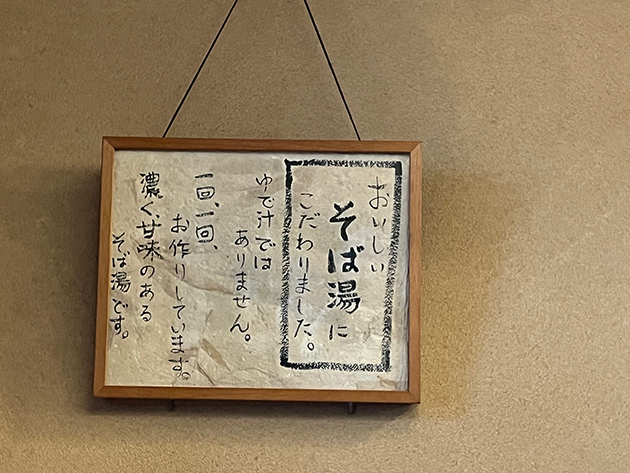 おいしい
そば湯に
こだわりました。
ゆで汁では
ありません。
一回、一回、
お作りしています。
濃く、甘味のある
そば湯です。